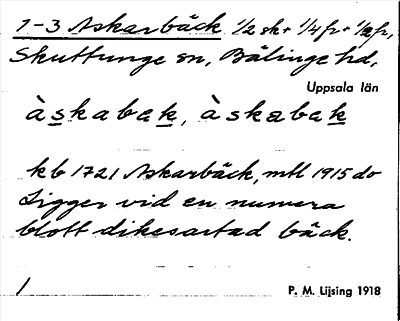 1-3 Askarbäck 1/2 sk + 1/4 fr + 1/8 fr,
Skuttunge sn, Bälinge hd,
Uppsala län
àskabak, àskabak
kb 1721 Askarbäck, mtl 1915 do
Ligger vid en numera
blott dikesartad bäck.
/ P. M. Lijsing 1918